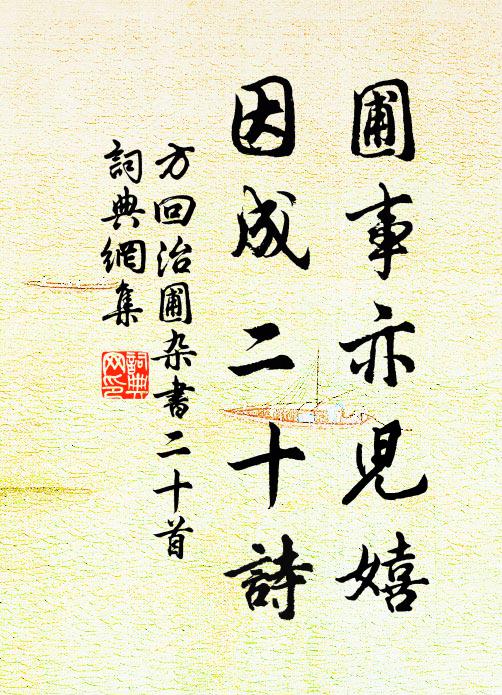 圃事亦児嬉
因成二十詩
方回治圃杂書二十首
詞典網集
詞典
网印